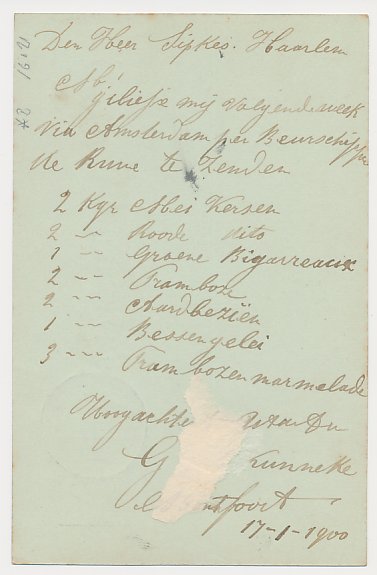 Den Heer Sipkes. Haarlem
M'
Gelieve mij volgende week
via Amsterdam per Beurschipper
de Ruue te Zenden
2 Kgr Mei Kersen
2 " Roode dito
1 " Groene Bigarreaux
2 " Frambozen
2 " Aardbeziën
1 " Bessengelei
3 " Frambozenmarmelade
Hoogachtend UEd Du
G Kunneke
ntfoort
17-1-1900